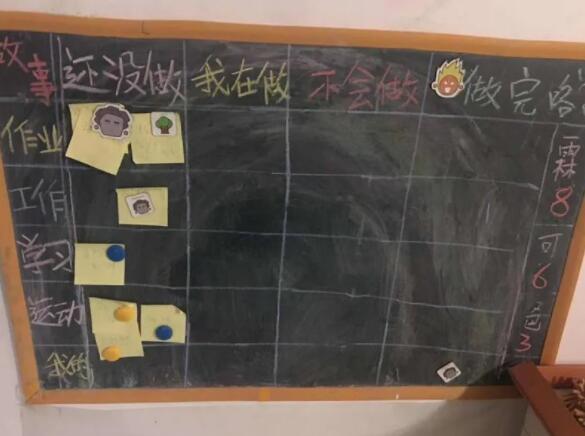 故事 还没做 我在做 不会做 做完咯
作业
工作
学习
运动
我的
霖
8
可
6
3